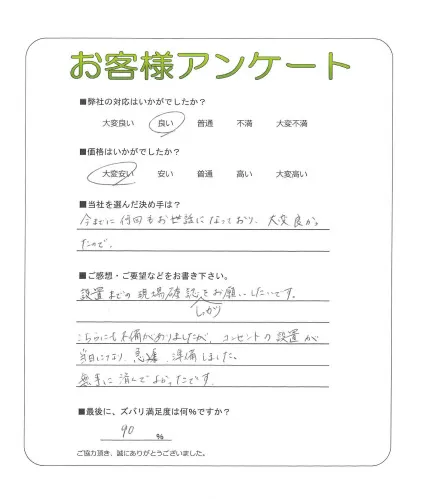 お客様アンケート
■弊社の対応はいかがでしたか？
大変良い 良い 普通 不満 大変不満
■価格はいかがでしたか？
大変安い 安い 普通 高い 大変高い
■当社を選んだ決め手は？
今までに何回もお世話になっており、大変良かっ
たので。
■ご感想・ご要望などをお書き下さい。
設置までの現場確認をお願いしたいです。
しっかり
こちらにも不備がありましたが、コンセントの設置が
当日になり、急遽準備しました。
無事に済んでよかったです。
■最後に、ズバリ満足度は何％ですか？
90 ％
ご協力頂き、誠にありがとうございました。